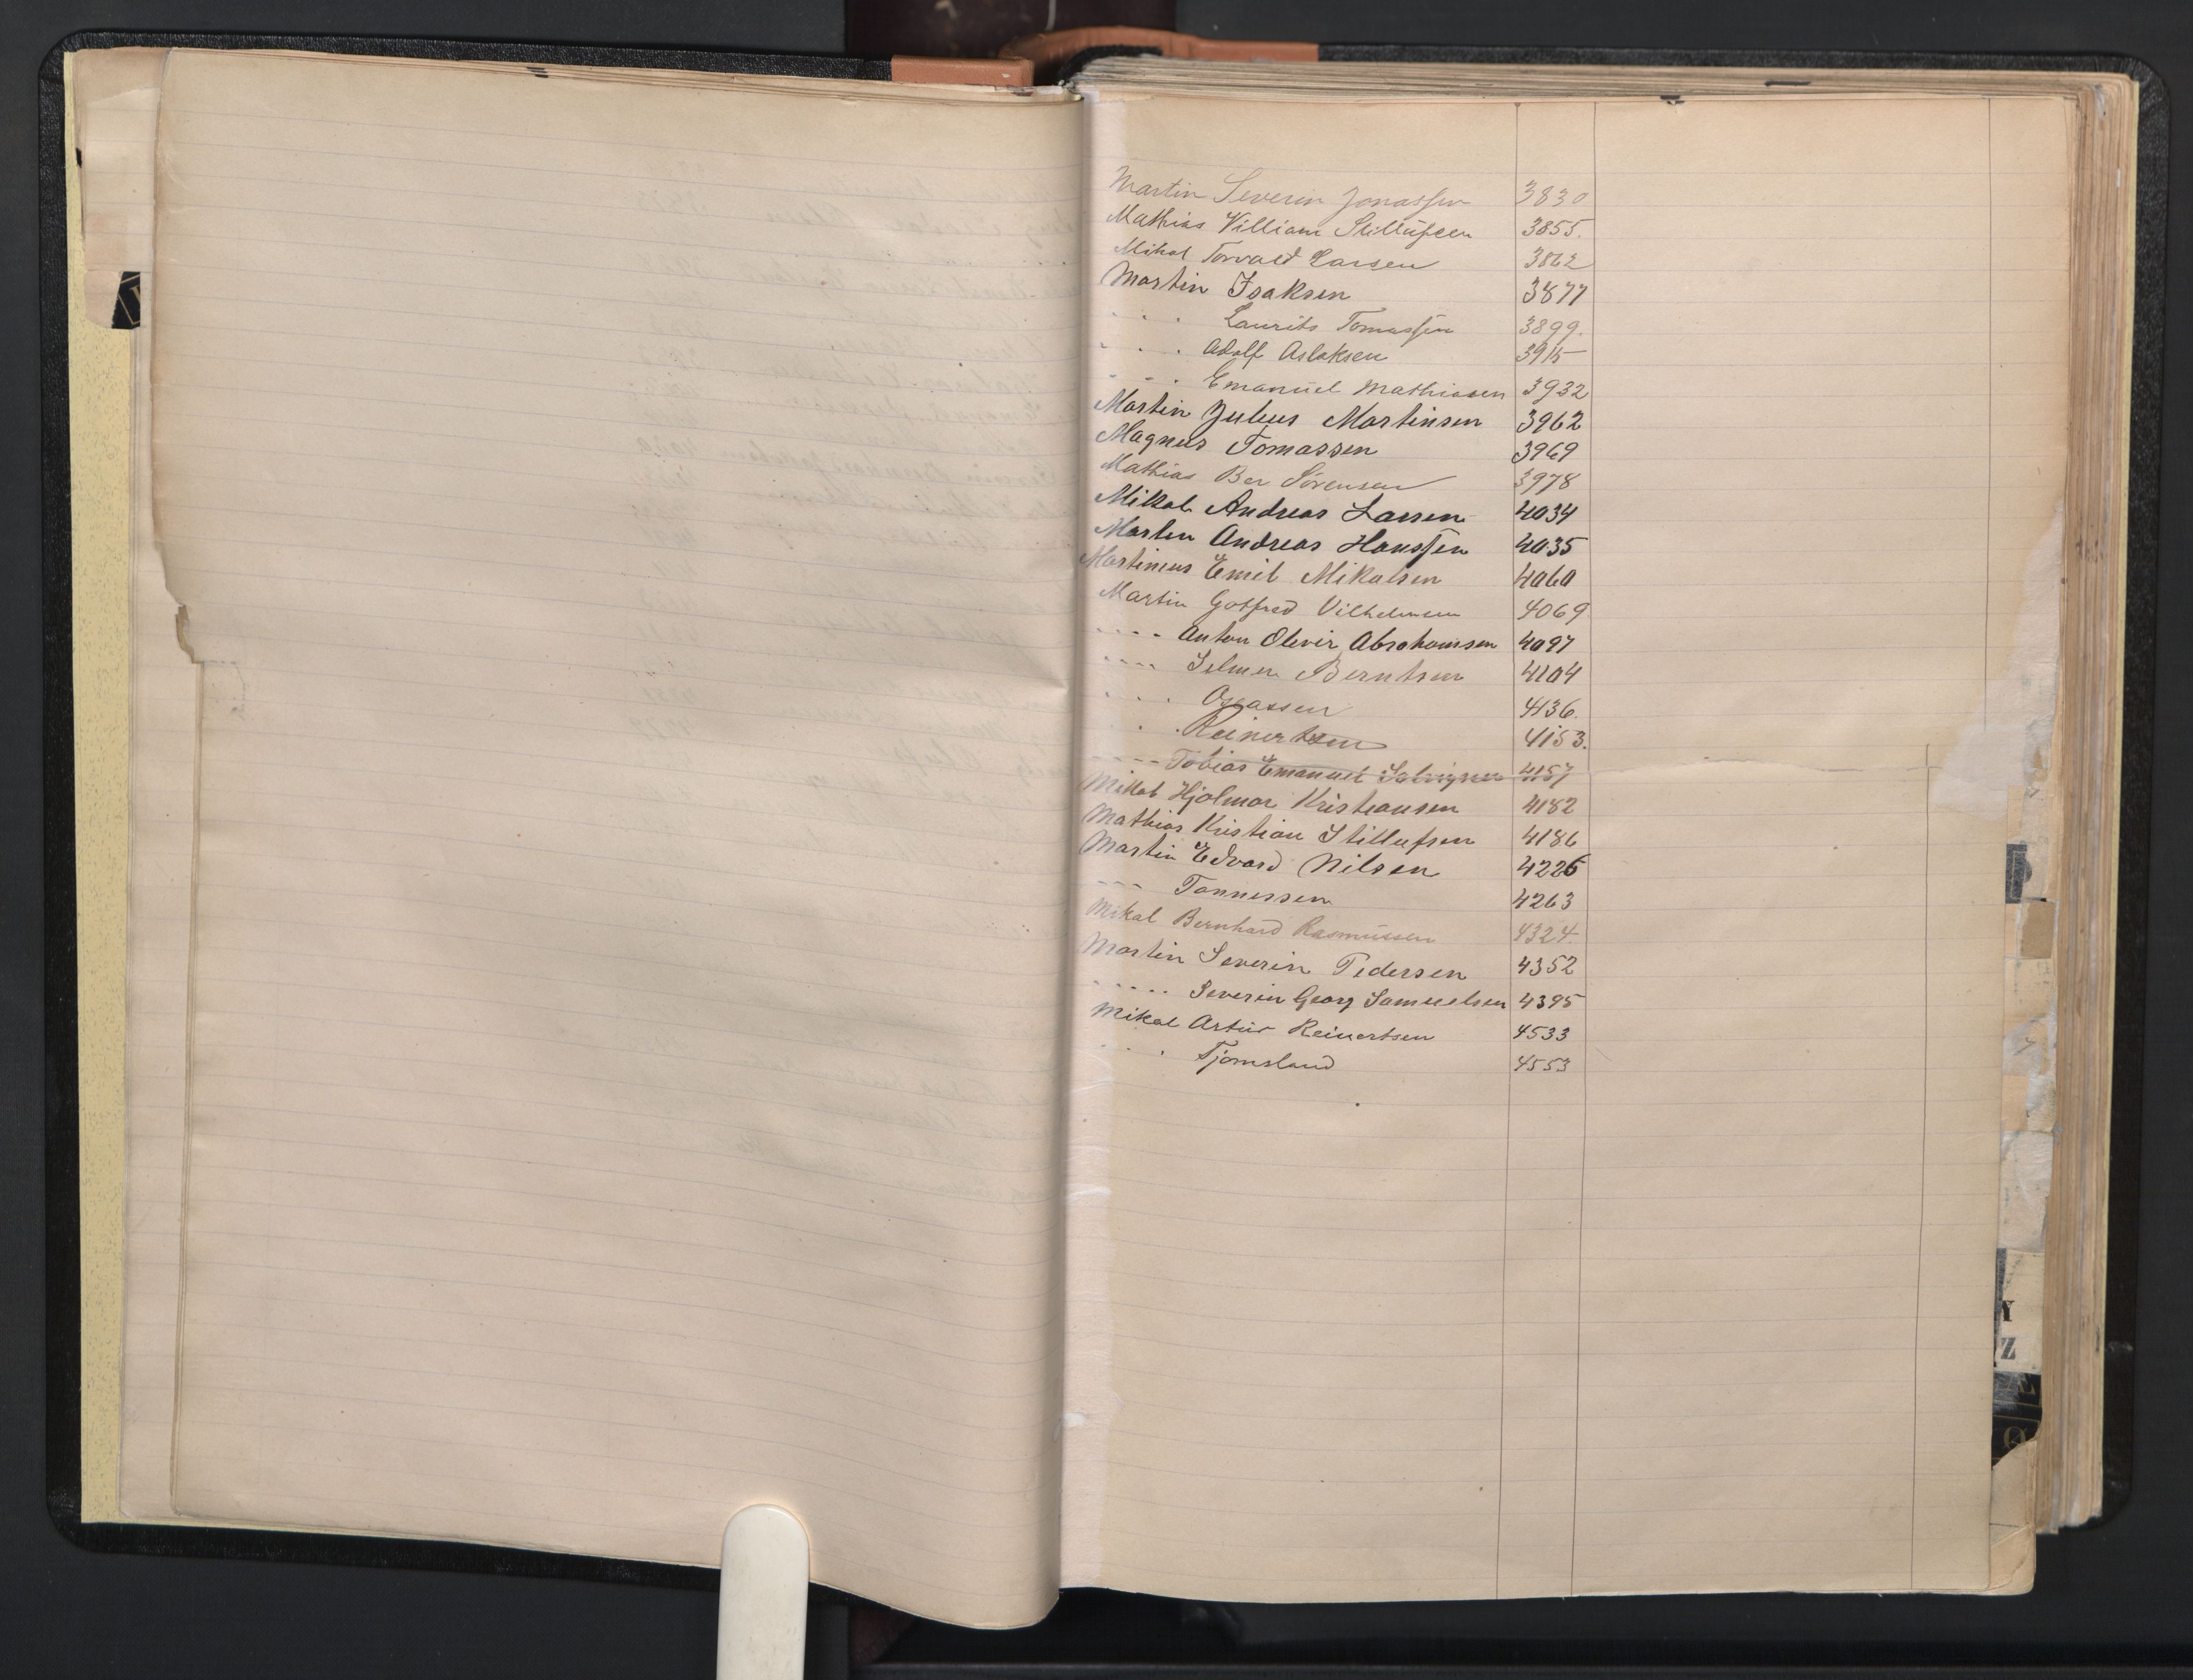 Martin Severin Jonassen 3830
Mathias Villiam Stillufsen 3855.
Mikal Torvald Larsen 3862
Martin Isaksen 3877
- - - Laurits Tomassen 3899.
- - - Adolf Aslaksen 3915
- - - Emanuel Mathiasen 3932
Martin Julius Martinsen 3962
Magnus Tomassen 3969
Mathias Ber Sørensen 3978
Mikal Andreas Larsen 4034
Martin Andreas Hanssen 4035
Martinius Emil Mikalsen 4060
Martin Gotfred Vilhelmsen 4069
- - - - Anton Olevir Abrahamsen 4097
- - - - Selmer Berntsen 4104
- - - Osæassen 4136.
- - Reinertsen 4153.
- - - - Tobias Emanuel 4157
Mikal Hjalmar Kristiansen 4182
Mathias Kristian Stillufsen 4186
Martin Edvard Nilsen 4226
- - - Tønnessen 4263
Mikal Bernhard Rasmussen 4324.
Martin Severin Pedersen 4352
- - - - - Severin Georg Samuelsen 4395
Mikal Artur Reinertsen 4533
- - - Tjomsland 4553
Y
Z
Ø